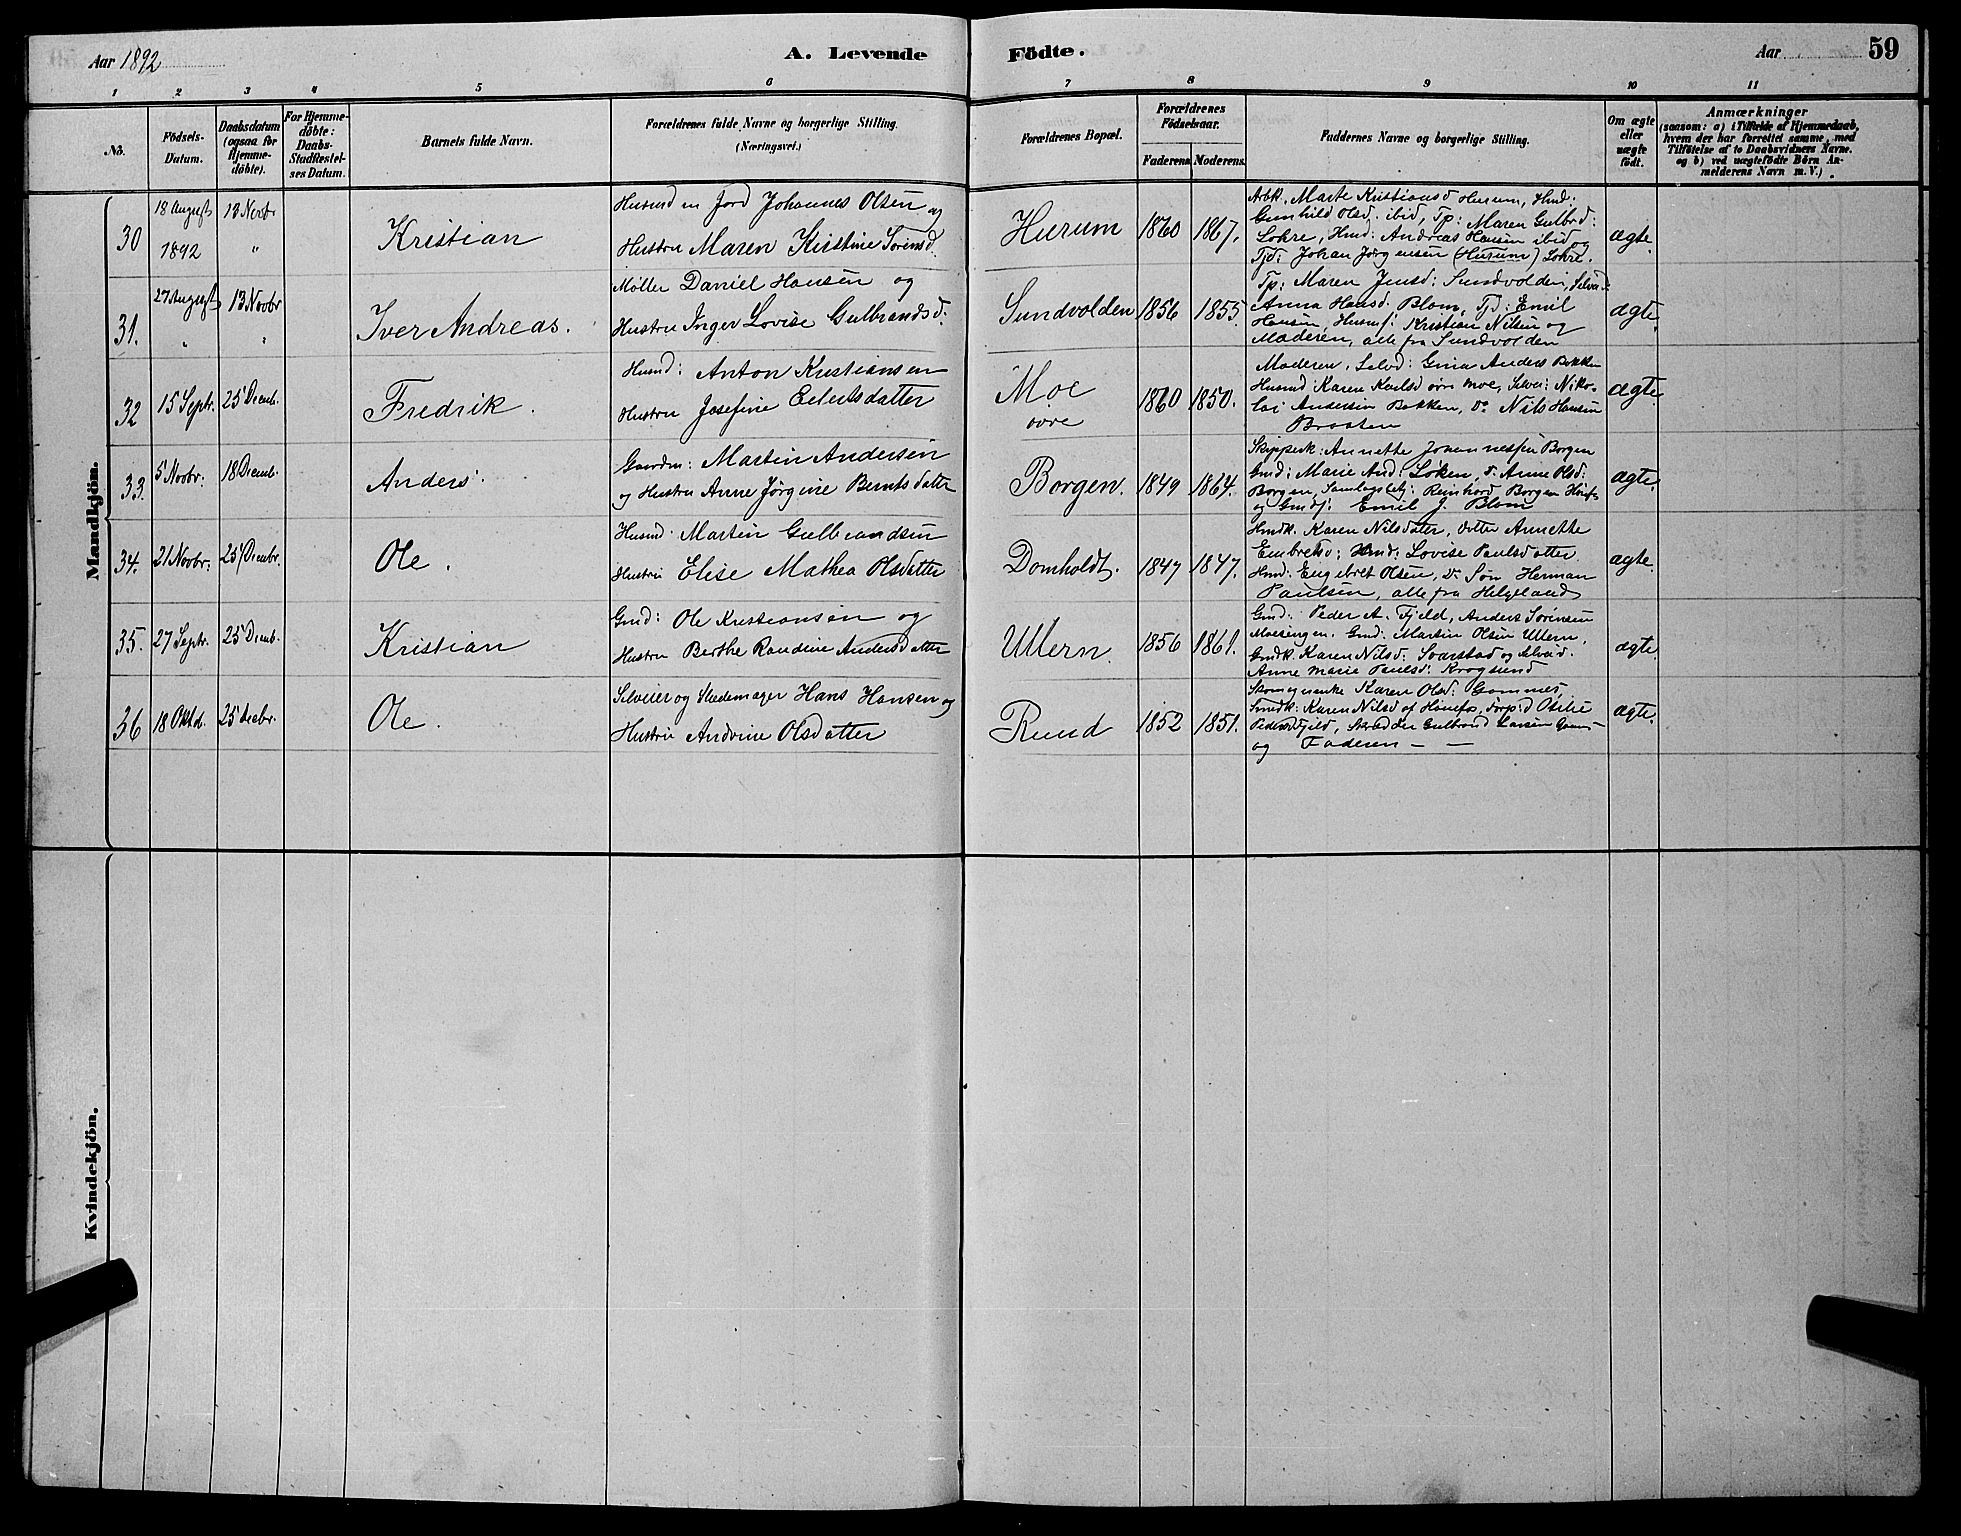 Aar 1892
A. Levende
Födte.
Aar
59
1 2 3 4 5 6 7 8 9 10 11
No.
Födsels-
Datum.
Daabsdatum
(ogsaa for
Hjemme-
döbte).
For Hjemme-
döbte:
Daabs-
Stadfæstel-
ses Datum.
Barnets fulde Navn.
Forældrenes fulde Navne og borgerlige Stilling.
(Næringsvei.)
Forældrenes Bopæl.
Forældrenes
Födselsaar.
Faderens.
Moderens.
Faddernes Navne og borgerlige Stilling.
Om ægte
eller
uægte
födt.
Anmærkninger
(saasom: a) i Tilfælde af Hjemmedaab,
hvem der har forrettet samme, med
Tilföielse af to Daabsvidners Navne.
og b) ved uægtefödte Börn An-
melderens Navn m. V.)
Mandkjön.
30
18 August
1892
13 Novbr.
"
Kristian
Husmd m Jord Johannes Olsen og
Hustru Maren Kirstine Sørensd.
Hurum
1860
1867.
Arbk. Marte Kristiansd Hurum, Hmd:
Gunhild Olsd. ibid, Tp: Maren Gulbrd:
Lohre, Hmd: Andreas Hansen ibid og
Tjd: Johan Jørgensen (Hurum) Lohre.
ægte.
31.
27 August
"
13 Novbr
"
Iver Andreas.
Møller Daniel Hansen og
Hustru Inger Lovise Gulbrandsd.
Sundvolden
1856
1855.
Tp: Maren Jensd: Sundvolden,
Anna Hansd. Blom, Tjd: Emil
Hansen, Husmf: Kristian Nilsen og
Moderen, alle fra Sundvolden
ægte.
32
15 Septr.
25 Decemb.
Fredrik.
Husmd: Anton Kristiansen
Hustru Josefine Eilertsdatter
Moe
øvre
1860
1850.
Moderen, Selvd: Gina Anders Bakken
Husmd Karen Karlsd øvre Moe, Selvei: Niko-
lai Andersen Bakken, do Nils Hansen
Braaten
ægte
33.
5 Novbr:
18 Decemb.
Anders.
Gaardm: Martin Andersen
og Hustru Anne Jørgine Berntsdatter
Borgen.
1849
1864.
Skipperk: Annette Borgen
Gmd: Marie And: Løken, d. Anne Olsd.
Borgen, Reinhard Borgen Hønefs
og Gmdf: Emil J. Blom
ægte.
34.
21 Novbr:
25 Decbr.
Ole.
Husmd. Martin Gulbrandsen
Hustru Elise Mathea Olsdatter
Domholdt.
1847
1847.
Hmdk. Karen Nilsdatter, datter Annette
Embretsd; Hmd: Lovise Paulsdatter.
Hmd: Engebret Olsen, Ds Søn Herman
Paulsen, alle fra Helgeland
ægte.
35.
27 Septr.
25 Decmb.
Kristian
Gmd: Ole Kristiansen og
Hustru Berthe Randine Andersdatter
Ullern.
1856
1861.
Gmd: Peder A. Fjeld, Anders Sørensen
Moesingen. Gmd: Martin Olsen Ullern,
Gmdk. Karen Nilsd: Svarstad og Selveid.
Anne Marie Paulsd: Krogsund
ægte.
36
18 Oktd.
25 decbr.
Ole.
Selveier og Slædemager Hans Hansen og
Hustru Andrine Olsdatter
Rund
1852
1851.
Skomagerenke Karen Olsd: Gommes,
Smdk: Karen Nilsd af Hønefos, Othilie
Fjeld, Skrædder Gulbrand Larsen Gom-
og Faderen — —
ægte.
Kvindekjön.